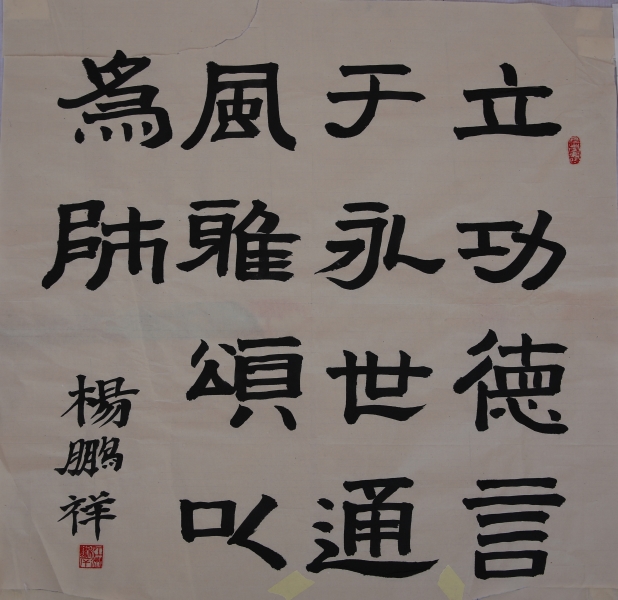 立功德言
于永世通
風雅頌以
為師
楊鵬祥